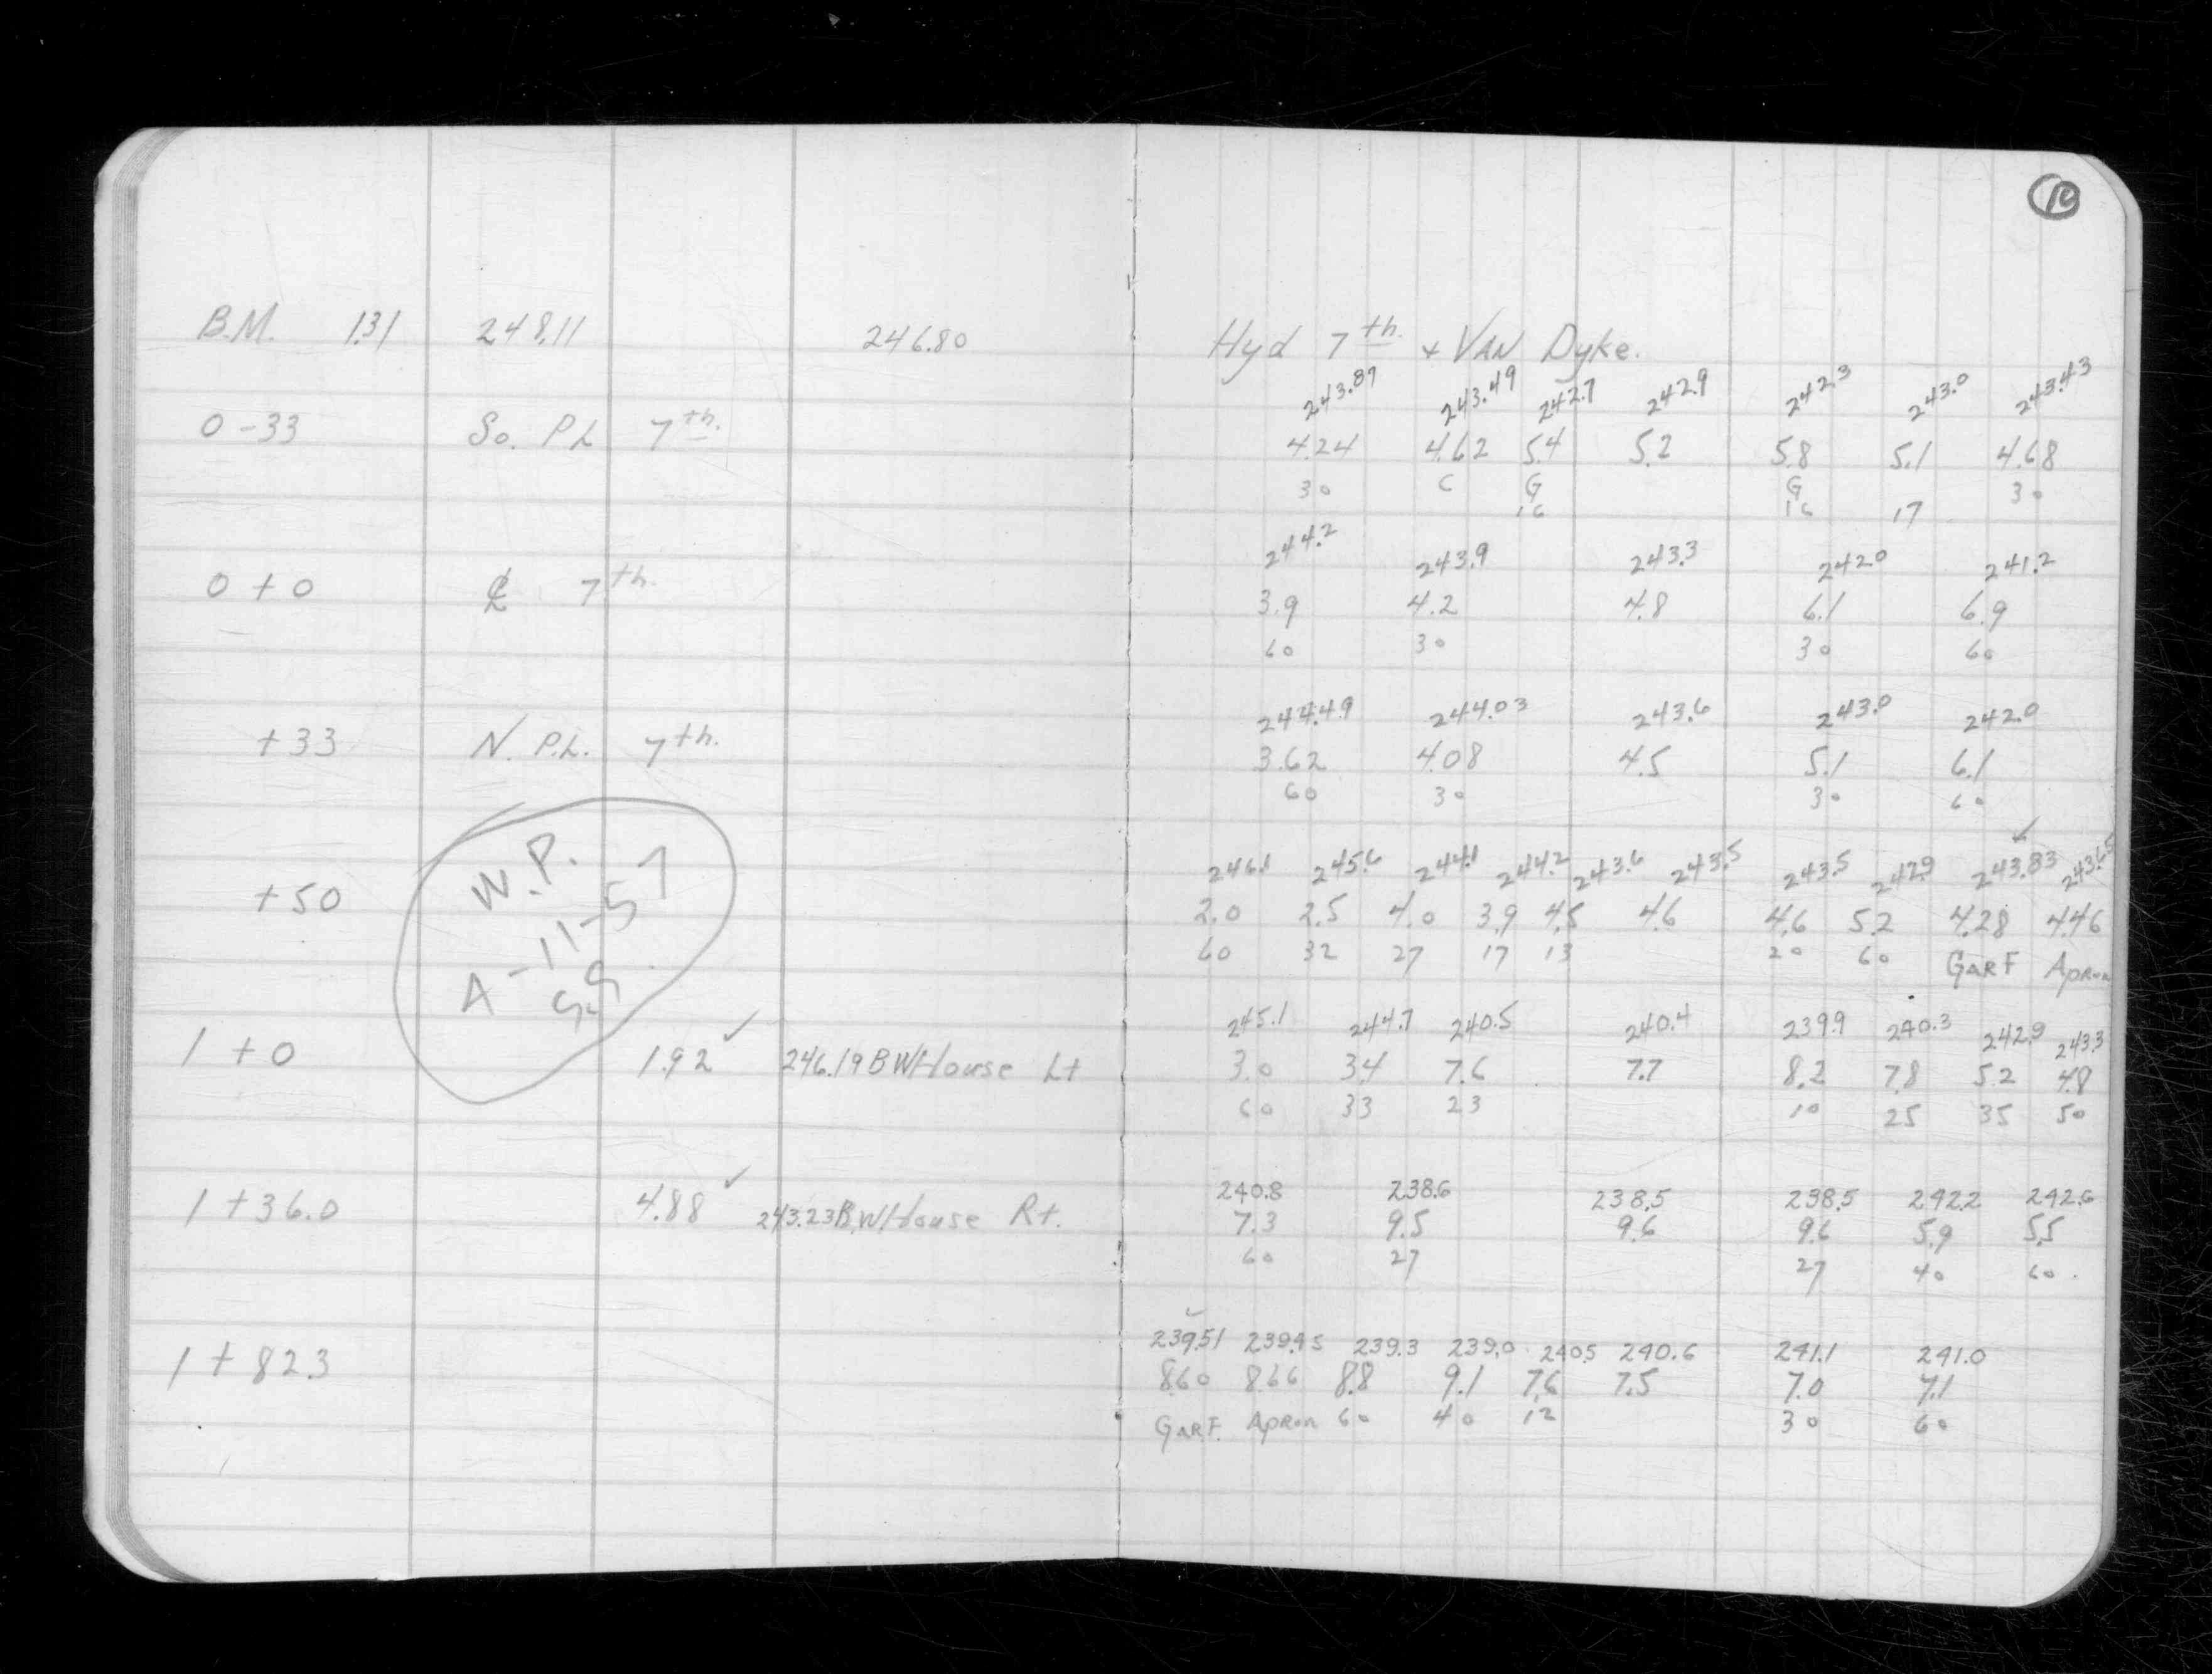 10
B.M. 1.31 248.11 246.80 Hyd 7th. + VAN Dyke.
243.87 243.49 242.7 242.9 242.3 243.0 243.43
0-33 So. PL 7th. 4.24 4.62 5.4 5.2 5.8 5.1 4.68
30 C G G 30
16 16 17
244.2 243.9 243.3 242.0 241.2
0+0 ℄ 7th. 3.9 4.2 4.8 6.1 6.9
60 30 30 60
244.49 244.03 243.6 243.0 242.0
+33 N. P.L. 7th. 3.62 4.08 4.5 5.1 6.1
60 30 30 60
W.P.
A-11-57
246.1 245.6 244.1 244.2 243.6 243.5 243.5 242.9 243.83 243.65
+50 2.0 2.5 4.0 3.9 4.5 4.6 4.6 5.2 4.28 4.46
60 32 27 17 13 20 60 GARF Apron
245.1 244.7 240.5 240.4 239.9 240.3 242.9 243.3
1+0 1.92 ✓ 246.19 BWHouse Lt 3.0 3.4 7.6 7.7 8.2 7.8 5.2 4.8
60 33 23 10 25 35 50
240.8 238.6 238.5 238.5 242.2 242.6
1+36.0 4.88 ✓ 243.23 B.WHouse Rt. 7.3 9.5 9.6 9.6 5.9 5.5
60 27 27 40 60
239.51 239.45 239.3 239.0 240.5 240.6 241.1 241.0
1+82.3 8.60 8.66 8.8 9.1 7.6 7.5 7.0 7.1
GARF. Apron 60 40 12 30 60